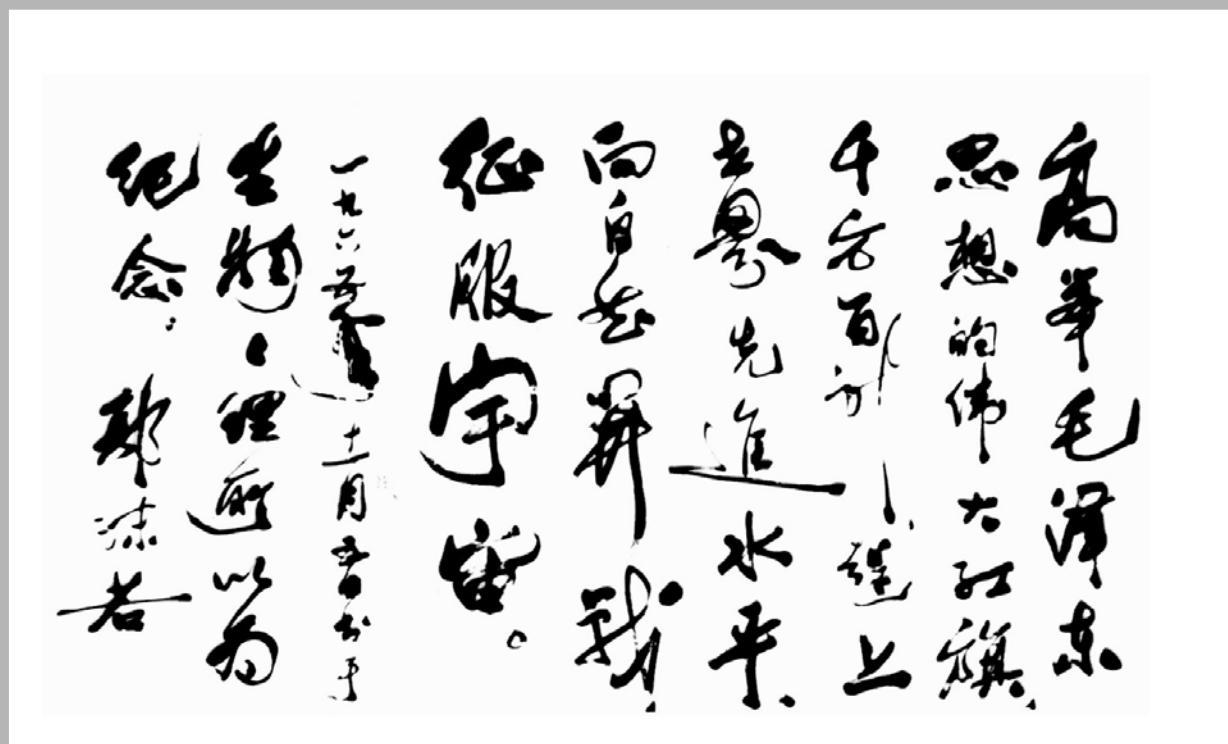 高举毛泽东
思想的伟大红旗,
千方百计,赶上
世界先進水平、
向自然开战,
征服宇宙。
一九六五年十一月五日书于
生物々理所以为
纪念. 郭沫若